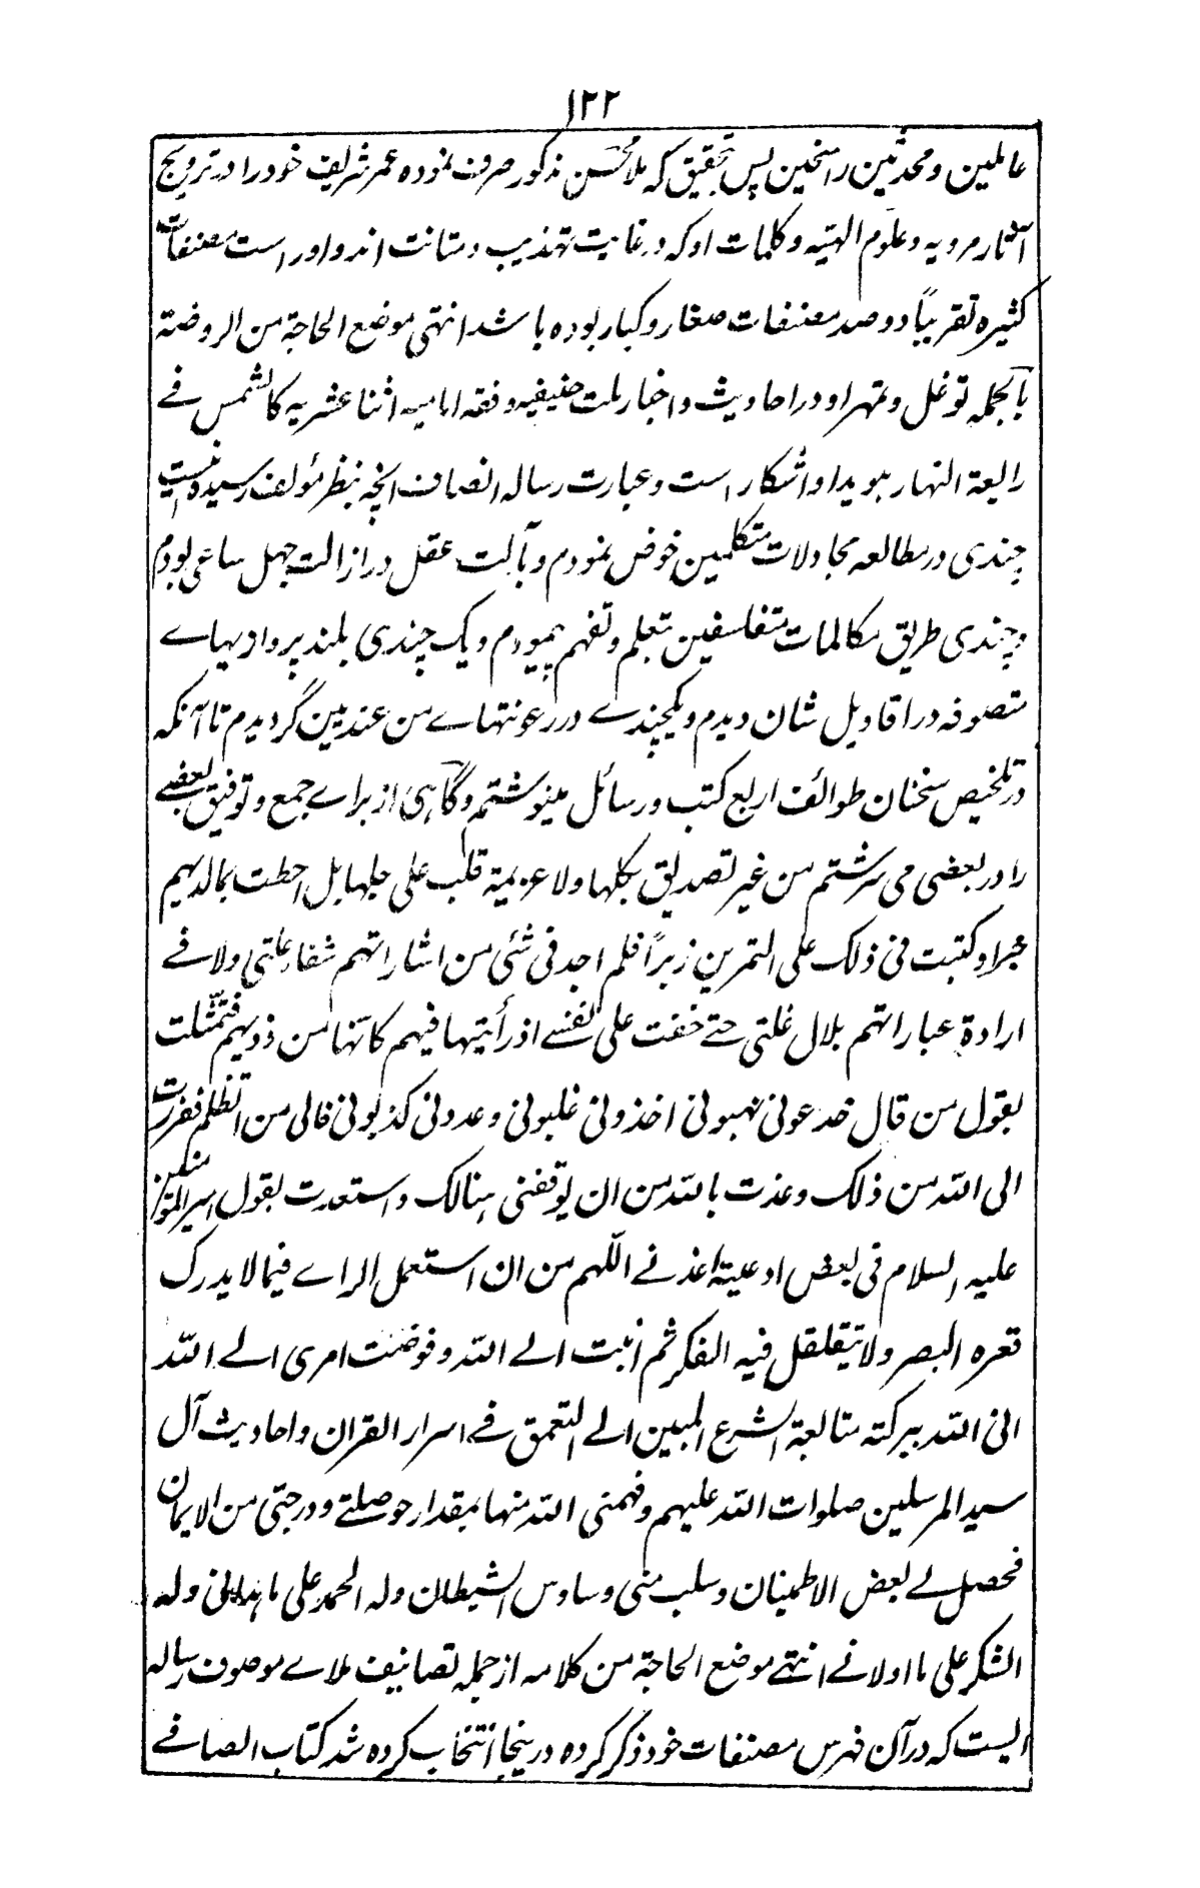 ۱۲۲
عاملین و محدثین راسخین پس تحقیق که ملا محسن مذکور صرف نموده عمر شریف خود را در ترویج
آثار مرویه و علوم الهیّه و کلمات او که در غایت تهذیب و متانت اند و اوراست مصنفات
کثیره تقریباً دو صد مصنفات صغار و کبار بوده باشد انتهی موضع الحاجة من الروضة
بالجمله توغل و تمهر او در احادیث و اخبار ملت حنیفیه و فقه امامیه اثنا عشریه کالشمس فے
رابعة النهار هویدا و آشکار است و عبارت رساله انصاف آنچه بنظر مؤلف رسیده اینست
چندی در مطالعه مجادلات متکلمین خوض نمودم و بآلت عقل در ازالت جهل ساعی بودم
و چندی طریق مکالمات متفلسفین بتعلم و تفهم پیمودم و یک چندی بلند پروازیهاے
متصوفه در اقاویل شان دیدم و یکچندے در رعونتهاے من عندیین گردیدم تا آنکه
در تلخیص سخنان طوائف اربع کتب و رسائل مینوشتم و گاهی از براے جمع و توفیق بعضے
را در بعضی می سرشتم من غیر تصدیق بکلها ولا عزیمة قلب علی جلها بل احطت بما لدیهم
خبرا و کتبت فی ذلک علی التمرین زبراً فلم اجد فی شئی من اشاراتهم شفاء علتی ولا فے
ارادة عباراتهم بلال غلتی حتے خفت علی نفسے اذ رأیتها فیهم کانّها من ذویهم فتمثّلت
بقول من قال خدعونی نهبونی اخذونی غلبونی وعدونی کذبونی فالی من اتظلم ففررت
الی الله من ذلک و عذت بالله من ان یوقفنی هنالک و استعذت بقول امیر المؤمنین
علیه السلام فی بعض ادعیته اعذنے اللّهم من ان استعمل الراے فیما لا یدرک
قعره البصر ولا یتقلقل فیه الفکر ثم انبت الے الله و فوضت امری الے الله
انی الله ببرکته متابعة الشرع المبین الے التعمق فے اسرار القران و احادیث آل
سید المرسلین صلوات الله علیهم و فهمنی الله منها بمقدار حوصلتے و درجتی من الایمان
فحصل لے بعض الاطمینان و سلب منی وساوس الشیطان وله الحمد علی ما هدانی وله
الشکر علی ما اولانے انتهے موضع الحاجة من کلامه از جمله تصانیف ملاے موصوف رساله
الیست که در آن فهرس مصنفات خود ذکر کرده در ینجا انتخاب کرده شد کتاب الصافے